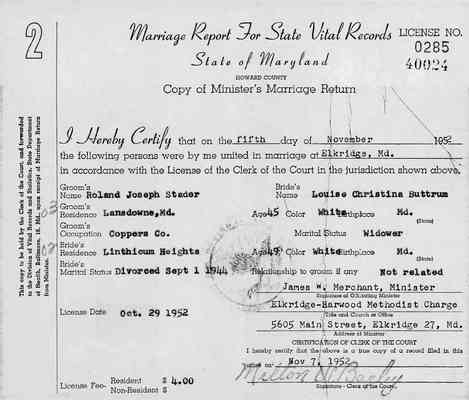 2
Marriage Report For State Vital Records
LICENSE NO.
0285
40024
State of Maryland
HOWARD COUNTY
Copy of Minister's Marriage Return
This copy to be held by the Clerk of the Court, and forwarded
to the Division of Vital Records and Statistics, State Department
of Health, Baltimore, 18, Md., upon receipt of Marriage Return
from Minister.
I Hereby Certify that on the fifth day of November 1952
the following persons were by me united in marriage at Elkridge, Md.
in accordance with the License of the Clerk of the Court in the jurisdiction shown above.
Groom's Name Roland Joseph Stader Bride's Name Louise Christina Buttrum
Groom's Residence Lansdowne, Md. Age 45 Color White Birthplace Md.
(State)
Groom's Occupation Coppers Co. Marital Status Widower
Bride's Residence Linthicum Heights Age 49 Color White Birthplace Md.
(State)
Bride's Marital Status Divorced Sept 1 1944 Relationship to groom if any Not related
James W. Merchant, Minister
Signature of Officiating Minister
Elkridge-Harwood Methodist Charge
Title and Church or Office
License Date Oct. 29 1952
5605 Main Street, Elkridge 27, Md.
Address of Minister
CERTIFICATION OF CLERK OF THE COURT
I hereby certify that the above is a true copy of a record filed in this
Nov 7, 1952
License Fee- Resident $ 4.00
Non-Resident $
Signature - Clerk of the Court